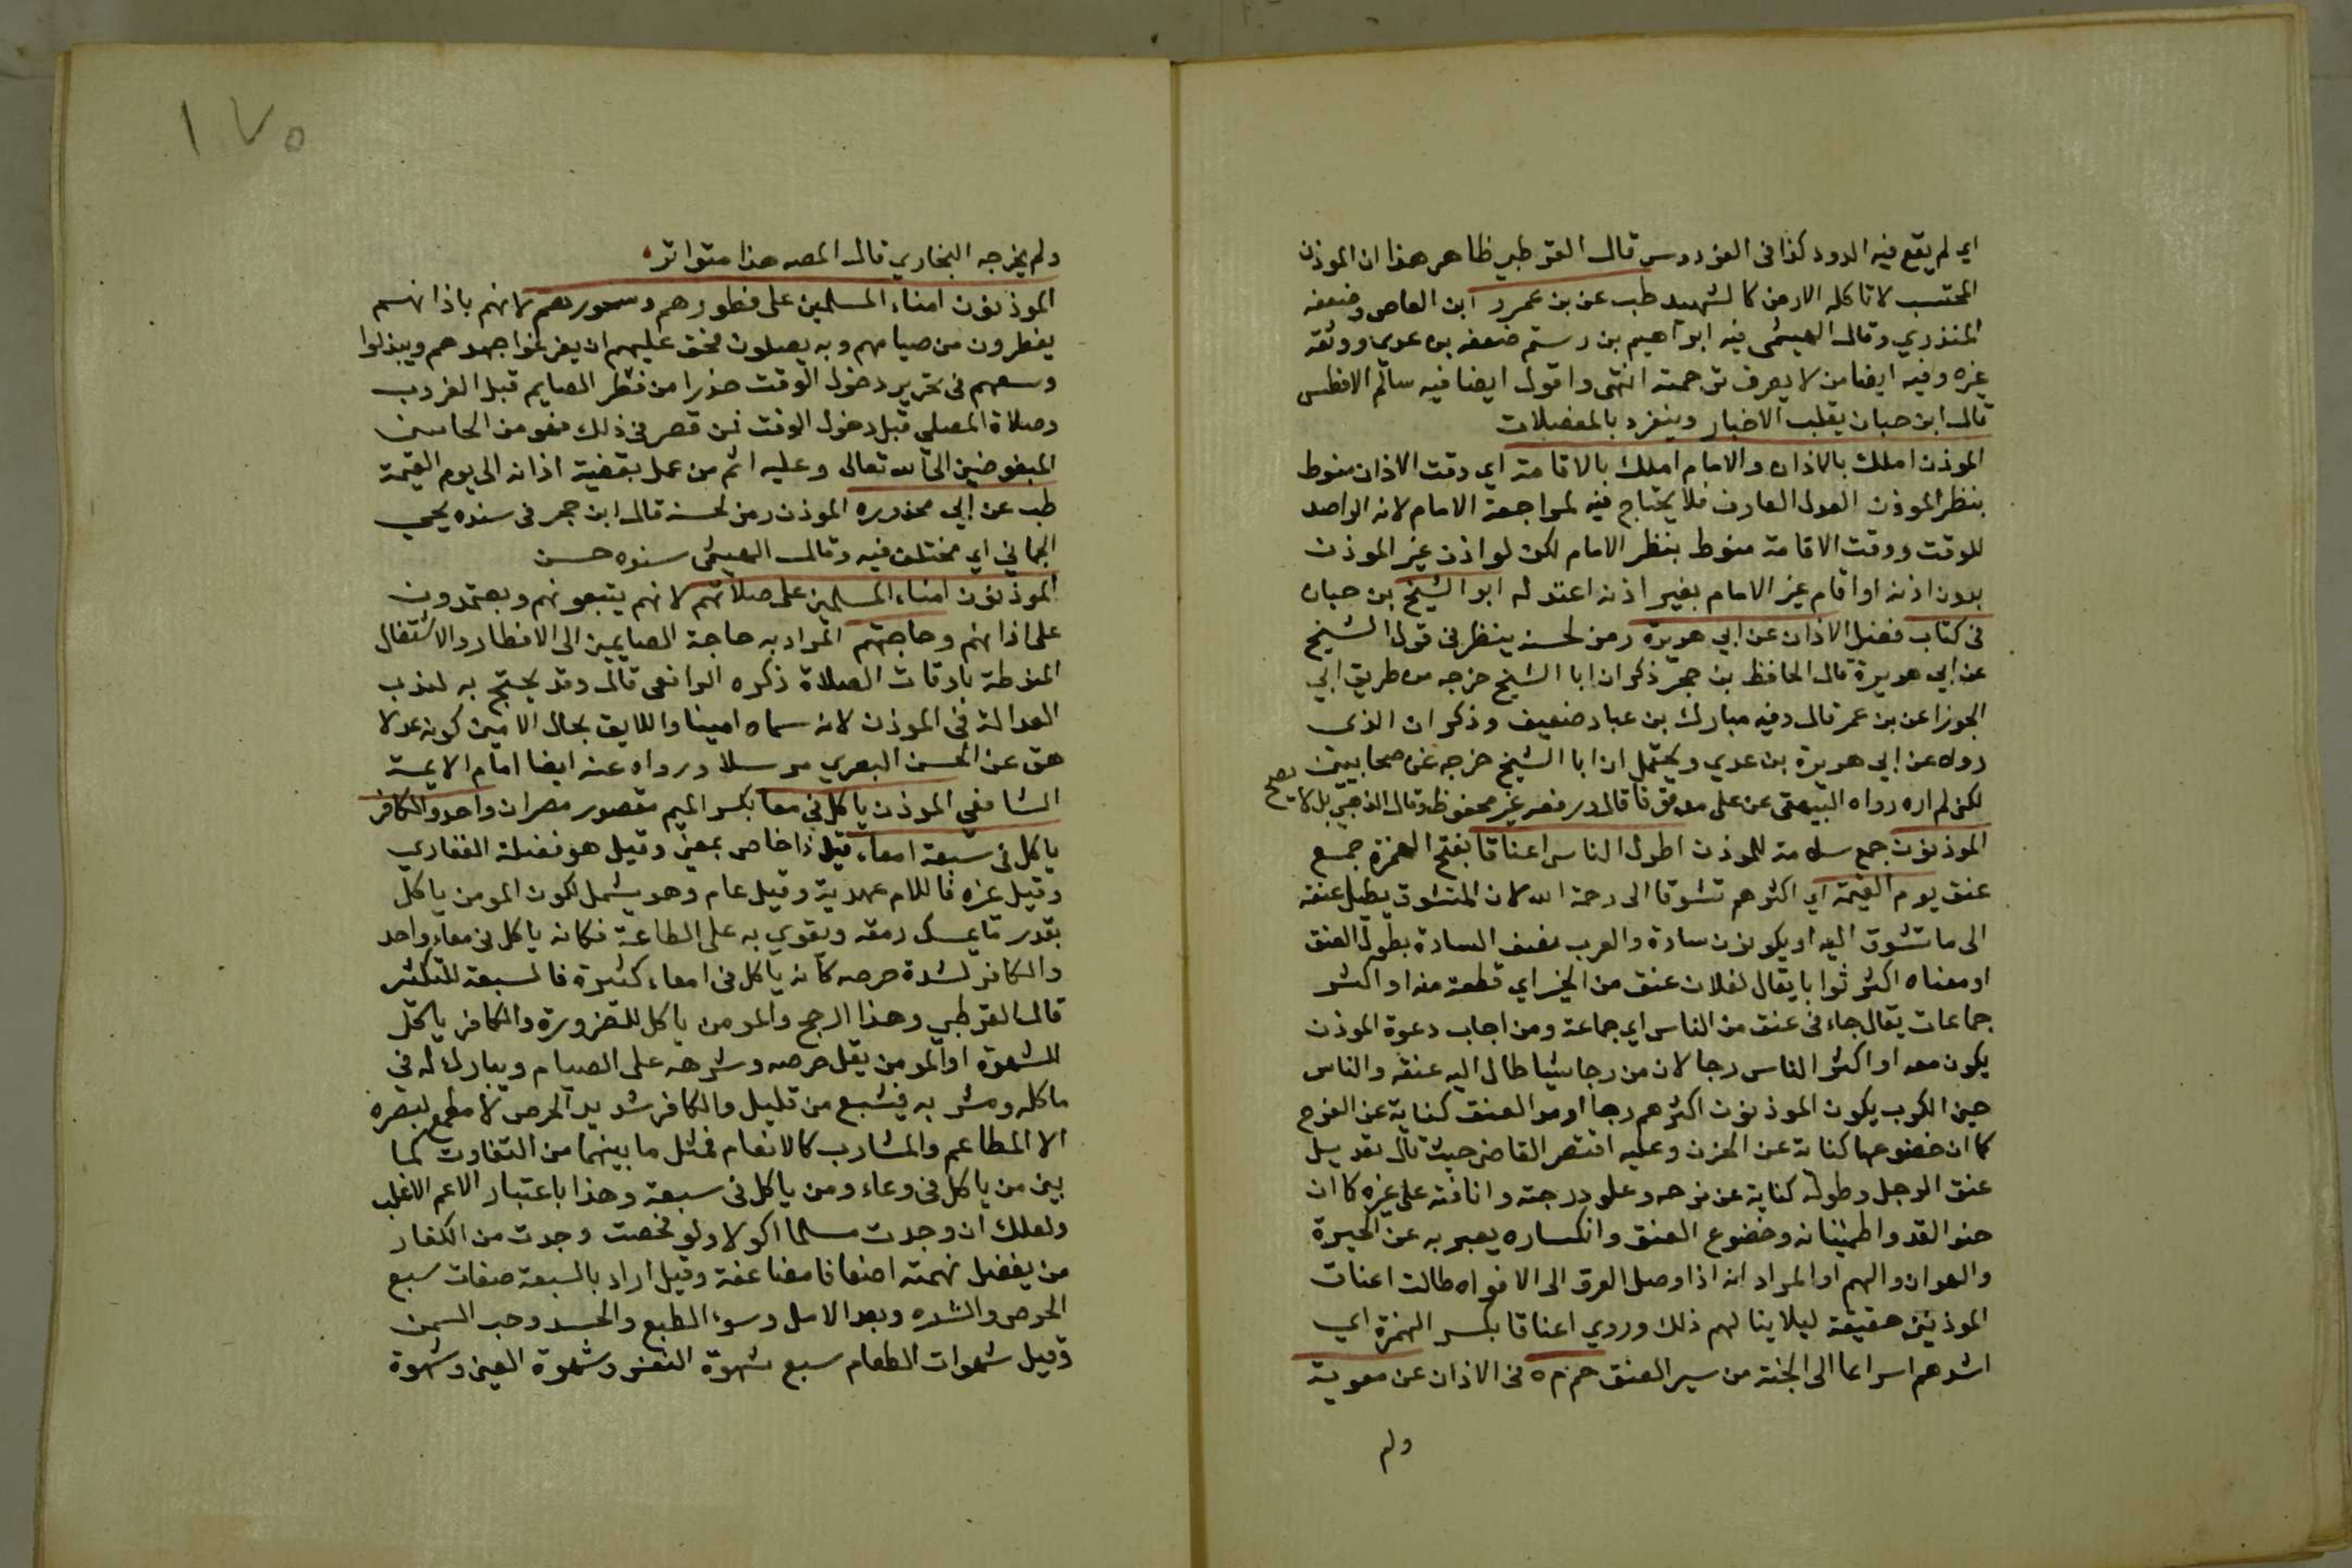 اي لم يقع فيه الدود كذا في الفردوس قال القرطبي ظاهر هذا ان الموذن
المحتسب لا تاكله الارض كالشهيد طب عن بن عمرو ابن العاص وضعفه
المنذري وقال الهيثمي فيه ابراهيم بن رستم ضعفه بن عدي ووثقه
غيره وفيه ايضا من لا يعرف ترجمته انتهى واقول ايضا فيه سالم الافطس
قال ابن حبان يقلب الاخبار وينفرد بالمعضلات
الموذن املك بالاذان والامام املك بالاقامة اي وقت الاذان منوط
بنظر الموذن العدل العارف فلا يحتاج فيه لمراجعة الامام لانه الراصد
للوقت ووقت الاقامة منوط بنظر الامام لكن لو اذن غير الموذن
بدون اذنه او اقام غير الامام بغير اذنه اعتد له ابو الشيخ بن حبان
في كتاب فضل الاذان عن ابي هريرة رمز لحسنه ينظر في قول الشيخ
عن ابي هريرة قال الحافظ بن حجر ذكر ان ابا الشيخ خرجه من طريق ابي
الجوزا عن بن عمر قال وفيه مبارك بن عباد ضعيف وذكر ان الذي
رواه عن ابي هريرة بن عدي ويحتمل ان ابا الشيخ خرجه عن صحابيين
لكن لم اره رواه البيهقي عن علي موقوفا قال ورفعه غير محفوظ وقال الذهبي بل لا يصح
الموذنون جمع سلامة للموذن اطول الناس اعناقا بفتح الهمزة جمع
عنق يوم القيمة اي اكثرهم تشوقا الى رحمة الله لان المتشوق يطيل عنقه
الى ما تشوق اليه او يكونون سادة والعرب تصف السادة بطول العنق
او معناه اكثر ثوابا يقال لفلان عنق من الخير اي قطعة منه او اكثر
جماعات يقال جاء في عنق من الناس اي جماعة ومن اجاب دعوة الموذن
يكون معه او اكثر الناس رجا لان من رجا شيا طال اليه عنقه والناس
حين الكرب يكون الموذنون اكثرهم رجا او مد العنق كناية عن الفرح
كما ان خضوعها كناية عن الحزن وعليه اقتصر القاضي حيث قال تعديل
عنق الرجل وطوله كناية عن فرحه وعلو درجته وانافته على غيره كما ان
حنو القد واطمئنانه وخضوع العنق وانكساره يعبر به عن الحيرة
والهوان والهم او المراد انه اذا وصل العرق الى الافواه طالت اعناق
الموذنين حقيقة ليلا ينالهم ذلك وروي اعناقا بكسر الهمزة اي
اشدهم اسراعا الى الجنة من سير العنق حم م ه في الاذان عن معوية
ولم
١٧٥
ولم يخرجه البخاري قال المصه هذا متواتر
الموذنون امناء المسلمين على فطورهم وسحورهم لانهم باذانهم
يفطرون من صيامهم وبه يصلون فحق عليهم ان يفرغوا جهدهم ويبذلوا
وسعهم في تحرير دخول الوقت حذرا من فطر الصايم قبل الغروب
وصلاة المصلي قبل دخول الوقت فمن قصر في ذلك فهو من الخاسين
المبغوضين الى الله تعالى وعليه اثم من عمل بقضية اذانه الى يوم القيمة
طب عن ابي محذوره الموذن رمز لحسنه قال ابن حجر في سنده يحيى
الحماني اي مختلف فيه وقال الهيثمي سنده حسن
الموذنون امناء المسلمين على صلاتهم لانهم يتبعونهم ويعتمدون
على اذانهم وحاجتهم المراد به حاجة الصايمين الى الافطار والاشتغال
المنوطة باوقات الصلاة ذكره الرافعي قال وقد يحتج به لندب
العدالة في الموذن لانه سماه امينا واللايق بحال الامين كونه عدلا
هق عن الحسن البصري مرسلا ورواه عنه ايضا امام الايمة
الشافعي الموذن ياكل في معا بكسر الميم مقصور مصران واحد والكافر
ياكل في سبعة امعاء قيل ذا خاص بمعين وقيل هو نضلة الغفاري
وقيل غيره فاللام عهدية وقيل عام وهو يشمل لكون المومن ياكل
بقدر ما يمسك رمقه ويقوي به على الطاعة فكانه ياكل في معاء واحد
والكافر لشدة حرصه كانه ياكل في امعاء كثيرة فالسبعة للتكثير
قال القرطبي وهذا ارجح والمومن ياكل للضرورة والكافر ياكل
للشهوة او المومن يقل حرصه وشرهه على الصيام ويبارك له في
ماكله ومشربه فيشبع من قليل والكافر شديد الحرص لا مطمح لبصره
الا المطاعم والمشارب كالانعام فمثل ما بينهما من التفاوت كما
بين من ياكل في وعاء ومن ياكل في سبعة وهذا باعتبار الاعم الاغلب
ولعلك ان وجدت مسلما اكولا ولو فحصت وجدت من الكفار
من يفضل نهمته اضعافا مضاعفة وقيل اراد بالسبعة صفات سبع
الحرص والشره وبعد الامل وسوء الطبع والحسد وحب السمن
وقيل شهوات الطعام سبع شهوة النفس وشهوة العين وشهوة